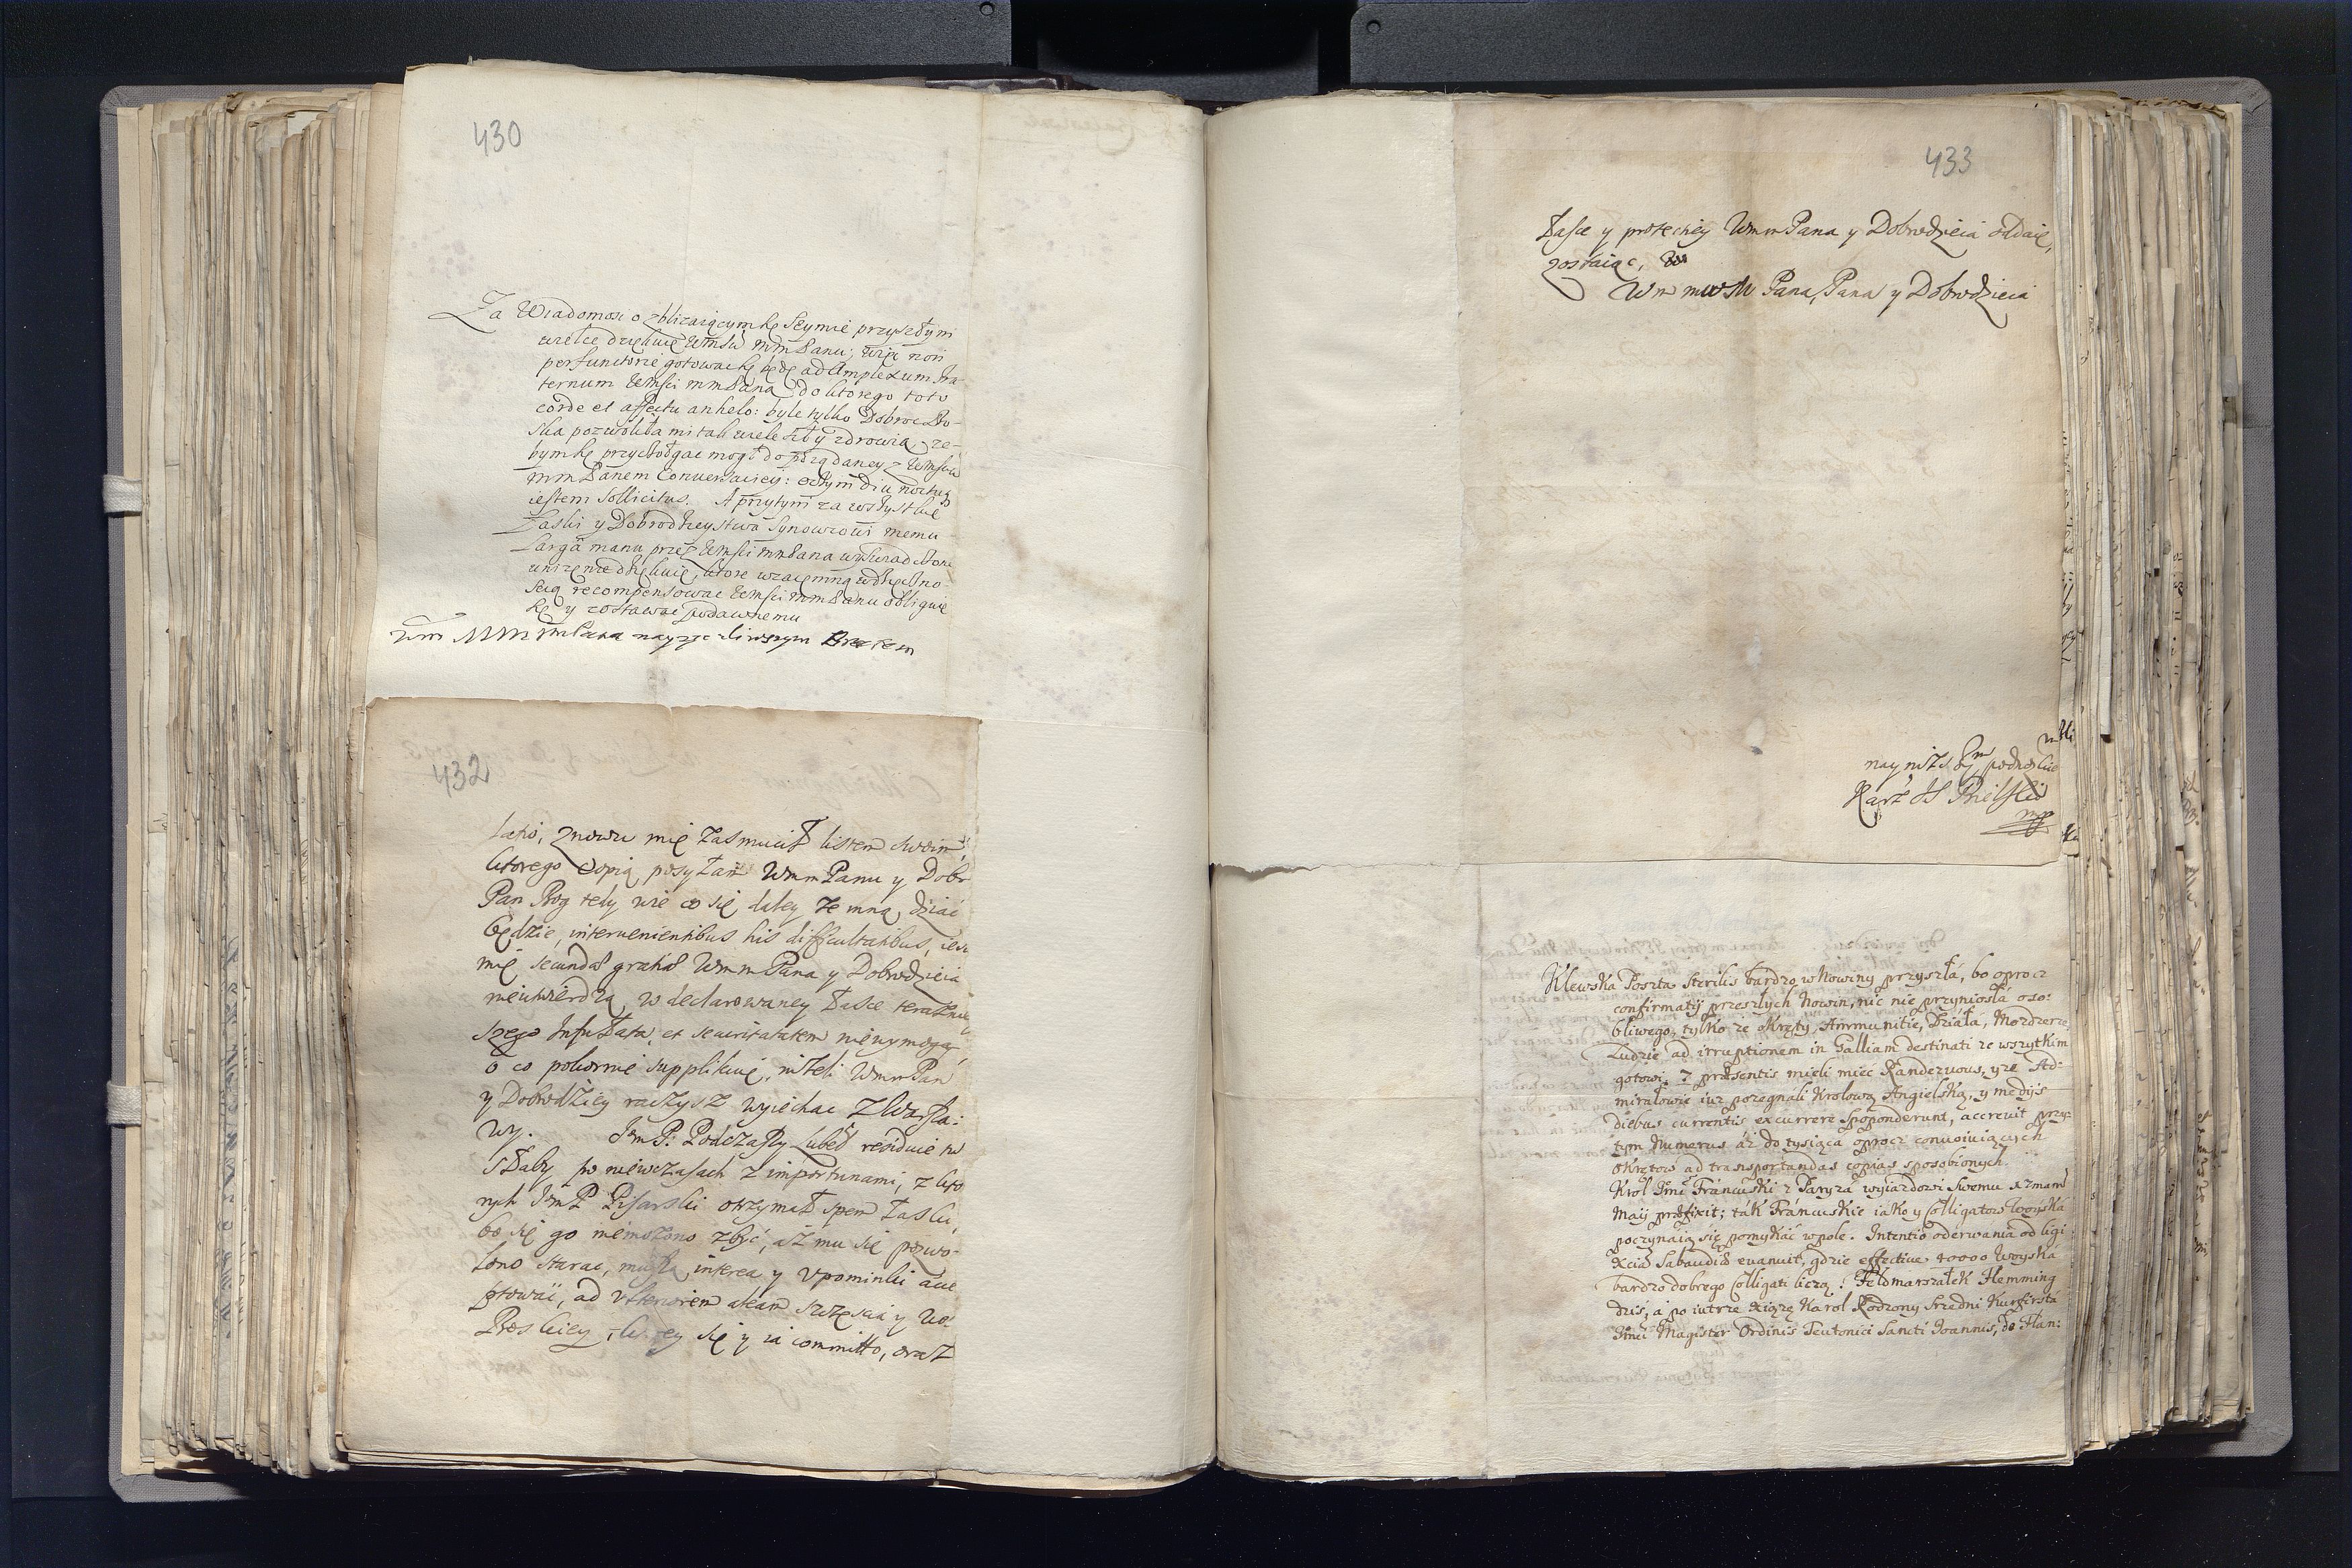 430
Za Wiadomosc o zblizaiącym się Seymie przyszłym
wielce dziękuię WMsci mmPanu; więc non
perfunctorie gotowac się będę ad Amplexum fra-
ternum WMsci mmPana do ktorego toto
corde et affectu anhelo: byle tylko Dobroc Bo-
ska pozwoliła mi tak wiele siły zdrowia, ze-
bym się przyczołgac mogł do pożądaney z WMscią
mmPanem Conuersaciey: o czym diu noctuq
iestem sollicitus. A przytym za wszystkie
Łaski y Dobrodzieystwa Synowcowi memu
Larga manu przez WMsci mmPana wyswiadczone
unizenie dziękuię, ktore wzaiemną wdzięczno-
scią recompensowac WMsci mmPanu obliguię
się y zostawac podawnemu
Wm MMmPana nayzyczliwszym Bratem
432
znowu mię zasmucił listem swoim,
ktorego Copią posyłam WmmPanu y Dobr
Pan Bog tedy wie co się daley ze mną dziać
będzie, interuenientibus his difficultatibus, iesli
mię secundas gratias WmmPana y Dobrodzieia
nieutwierdzą w declarowaney łasce teraznie
szego et securitatem niewymogą,
o co pokornie supplikuię, nizeli WmmPan
y Dobrodziey raczysz wyiechac z Warsza:
wy. JmP: Podczaszy Lubel residuie w
słaby po niewczasach z importunami, z kto
rych JmP Pisarski otrzymał spem łaski,
bo się go niemozono zbyć, aż mu się pozwo-
lono starac, muszą interea y Upominki acce
ptowáć, ad vlteriorem aleam szczęscia y
ktorey się y ia committo, oraz
433
Łasce y protekciey WmmPana y Dobrodzieia oddaię,
zostaiąc,
Wm mwM Pana, Pana y Dobrodzieia
nayniższym podnoszkie
mp
Klewska Poszta sterilis bardzo w Nowiny przyszła, bo oprocz
confirmatij przeszłych Nowin, nic nie przyniosła oso:
bliwego, tylko ze okręty, Ammunitie, Działa, Mozdzerze,
Ludzie ad irruptionem in Galliam destinati ze wszytkim
gotowi, 7 præsentis mieli mieć Randevous, y ze Ad-
mirałowie iuz pozegnali Krolową Angielską, y medijs
diebus currentis excurrere spoponderunt, accreuit przy-
tym Numerus áż do tysiąca oprocz conuoiuiących
okrętow ad transportandas copias sposobionych.
Krol Jmć Francuski z Paryza wyiazdowi swemu
Maij præfixit; ták Francuskie iako y Colligatow woyska
poczynaią się pomykać w pole. Intentio oderwania od ligi
Xcia Sabaudiæ euanuit, gdzie effectiue 40000 Woyska
bardzo dobrego Colligati liczą. Feldmarszałek Flemming
dzis, a po iutrze Xiąze Karol Rodzony Sredni Kurfirsta
Jmci Magister Ordinis Teutonici Sancti Joannis, do Flan: